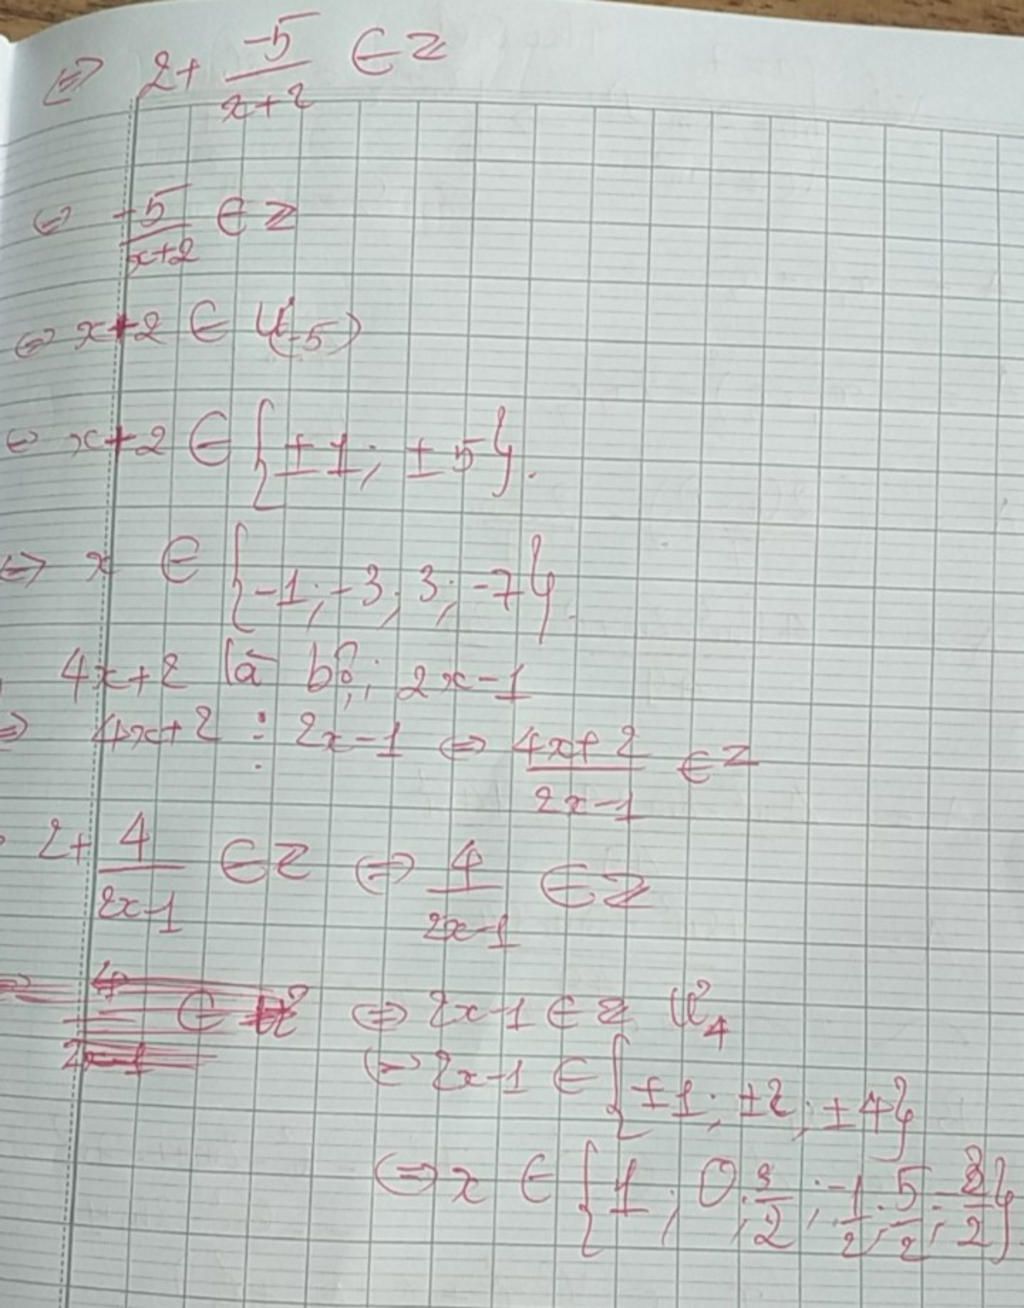 ⇔ 2 + \frac{-5}{x+2} ∈ Z
⇔ \frac{-5}{x+2} ∈ Z
⇔ x+2 ∈ Ư(-5)
⇔ x+2 ∈ {±1; ±5}.
⇔ x ∈ {-1; -3; 3; -7}.
4x+2 là bội 2x-1
⇒ 4x+2 ⋮ 2x-1 ⇔ \frac{4x+2}{2x-1} ∈ Z
2 + \frac{4}{2x-1} ∈ Z ⇔ \frac{4}{2x-1} ∈ Z
⇔ 2x-1 ∈ Z Ư4
⇔ 2x-1 ∈ {±1; ±2; ±4}
⇔ x ∈ {1; 0; \frac{3}{2}; \frac{-1}{2}; \frac{5}{2}; \frac{-3}{2}}